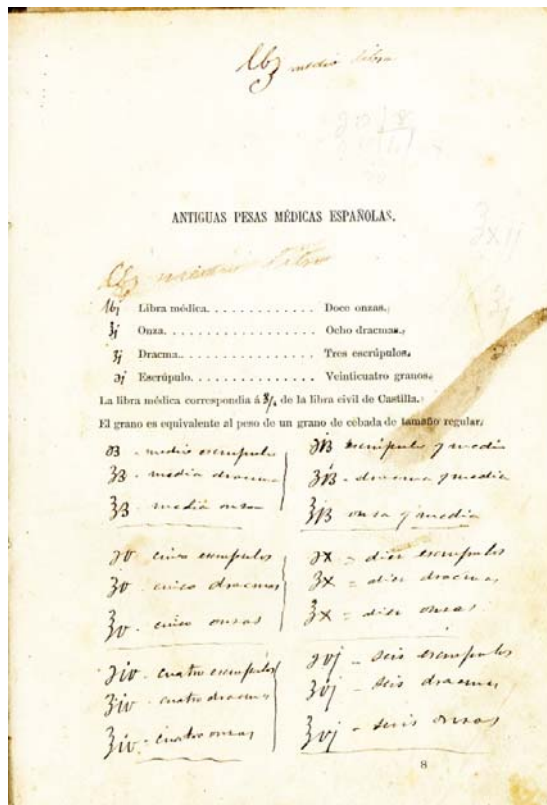 ℔ß medio libra
ANTIGUAS PESAS MÉDICAS ESPAÑOLAS.
℔ß media libra
℔j Libra médica. . . . . . . . . . . . . Doce onzas.
℥j Onza. . . . . . . . . . . . . . . . . Ocho dracmas.
ʒj Dracma. . . . . . . . . . . . . . . . Tres escrúpulos.
℈j Escrúpulo. . . . . . . . . . . . . . Veinticuatro granos.
La libra médica correspondia á 3/4 de la libra civil de Castilla.
El grano es equivalente al peso de un grano de cebada de tamaño regular.
℈ß - medio escrupulo
ʒß - media dracma
℥ß - media onsa
℈jß escrúpulo y medio
ʒjß - dracma y media
℥jß onsa y media
℈v cinco escrupulos
ʒv - cinco dracmas
℥v - cinco onsas
℈x = diez escrupulos
ʒx = diez dracmas
℥x = diez onsas
℈iv - cuatro escrupulos
ʒiv - cuatro dracmas
℥iv - cuatro onsas
℈vj - seis escrupulos
ʒvj - seis dracmas
℥vj - seis onsas
8